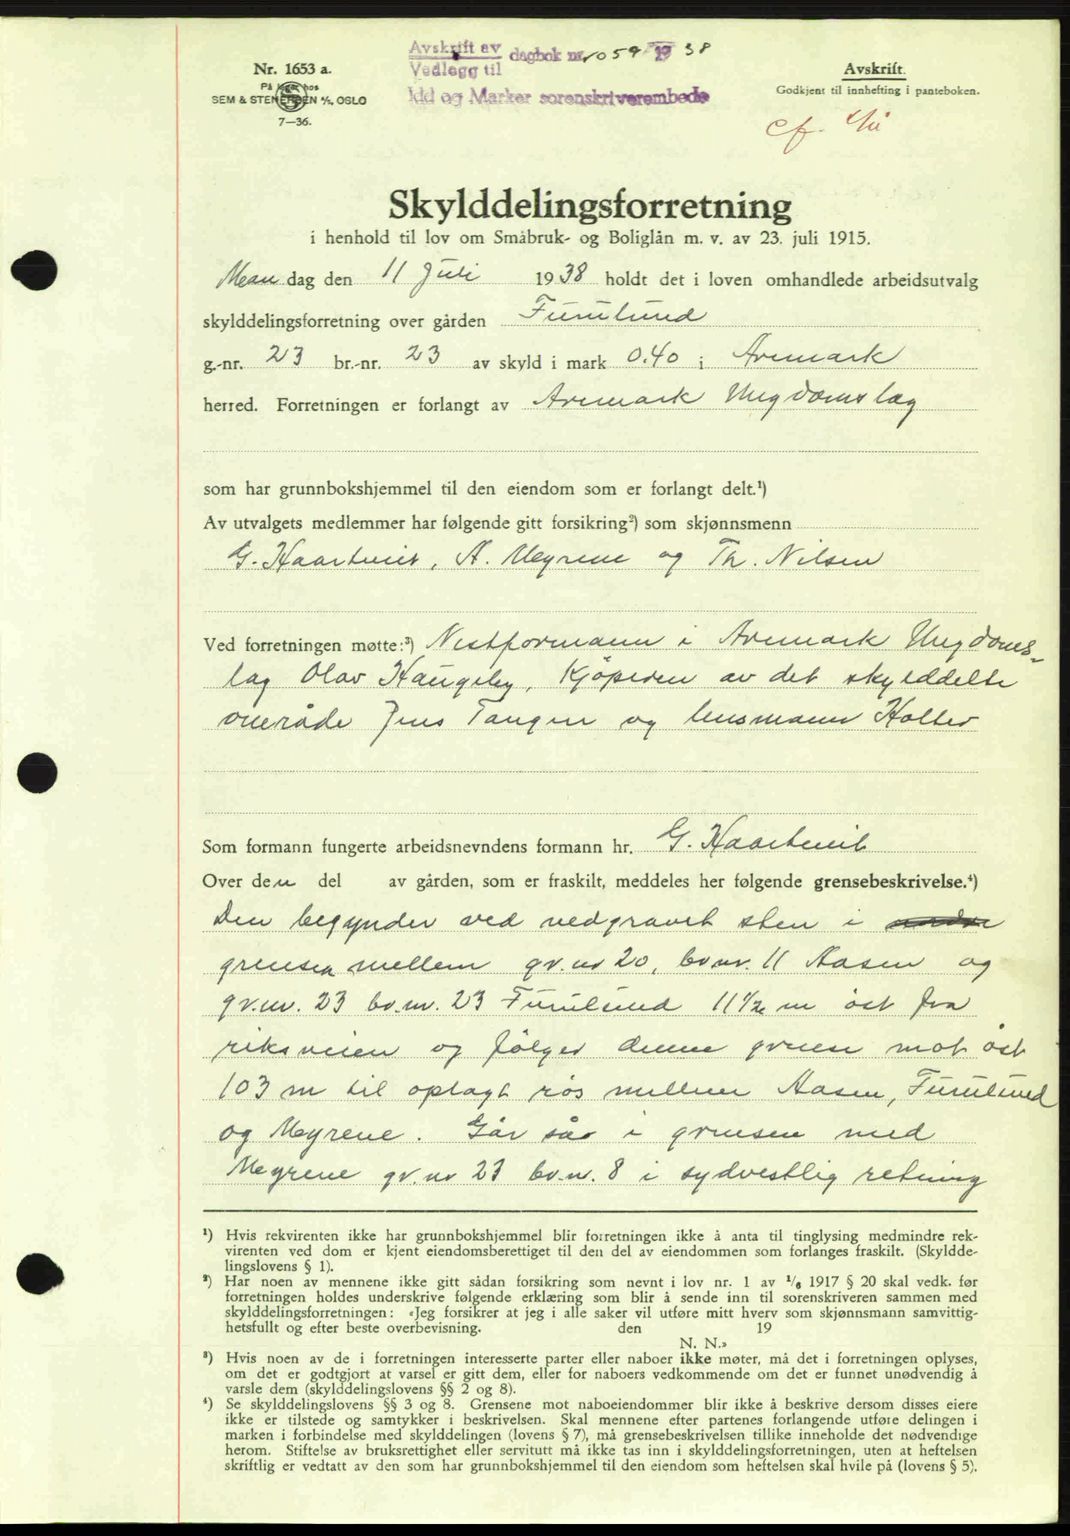 Nr. 1653 a.
På lager hos
SEM & STENERSEN A/S, OSLO
7—36.
Avskrift av dagbok nr. 1059 1938
Vedlegg til
Idd og Marker sorenskriverembede
Avskrift.
Godkjent til innhefting i panteboken.
Skylddelingsforretning
i henhold til lov om Småbruk- og Boliglån m. v. av 23. juli 1915.
Mandag den 11 Juli 1938 holdt det i loven omhandlede arbeidsutvalg
skylddelingsforretning over gården Furulund
g.-nr. 23 br.-nr. 23 av skyld i mark 0.40 i Aremark
herred. Forretningen er forlangt av Aremark Ungdomslag
som har grunnbokshjemmel til den eiendom som er forlangt delt.¹)
Av utvalgets medlemmer har følgende gitt forsikring²) som skjønnsmenn
G. Kaartveit, A. Myrene og Th. Nilsen
Ved forretningen møtte:³) Nestformann i Aremark Ungdoms-
lag Olav Haugsby, Kjøperen av det skylddelte
område Jens Tangen og lensmann Holter
Som formann fungerte arbeidsnevndens formann hr. G. Kaartveit
Over den del av gården, som er fraskilt, meddeles her følgende grensebeskrivelse.⁴)
Den begynder ved nedgravet sten i
grensen mellem gr.nr 20, br.nr. 11 Aasen og
gr.nr. 23 br.nr. 23 Furulund 11½ m öst fra
riksveien og fölger denne grense mot öst
103 m til oplagt rös mellem Aasen, Furulund
og Myrene. Går så i grensen med
Myrene gr.nr 23 br.nr. 8 i sydvestlig retning
¹) Hvis rekvirenten ikke har grunnbokshjemmel blir forretningen ikke å anta til tinglysing medmindre rek-
virenten ved dom er kjent eiendomsberettiget til den del av eiendommen som forlanges fraskilt. (Skyldde-
lingslovens § 1).
²) Har noen av mennene ikke gitt sådan forsikring som nevnt i lov nr. 1 av 1/6 1917 § 20 skal vedk. før
forretningen holdes underskrive følgende erklæring som blir å sende inn til sorenskriveren sammen med
skylddelingsforretningen: «Jeg forsikrer at jeg i alle saker vil utføre mitt hverv som skjønnsmann samvittig-
hetsfullt og efter beste overbevisning. den 19
N. N.»
³) Hvis noen av de i forretningen interesserte parter eller naboer ikke møter, må det i forretningen oplyses,
om det er godtgjort at varsel er gitt dem, eller for naboers vedkommende om det er funnet unødvendig å
varsle dem (skylddelingslovens §§ 2 og 8).
⁴) Se skylddelingslovens §§ 3 og 8. Grensene mot naboeiendommer blir ikke å beskrive dersom disses eiere
ikke er tilstede og samtykker i beskrivelsen. Skal mennene efter partenes forlangende utføre delingen i
marken i forbindelse med skylddelingen (lovens § 7), må grensebeskrivelsen tillike inneholde det nødvendige
herom. Stiftelse av bruksrettighet eller servitutt må ikke tas inn i skylddelingsforretningen, uten at heftelsen
skriftlig er vedtatt av den som har grunnbokshjemmel til den eiendom som heftelsen skal hvile på (lovens § 5).